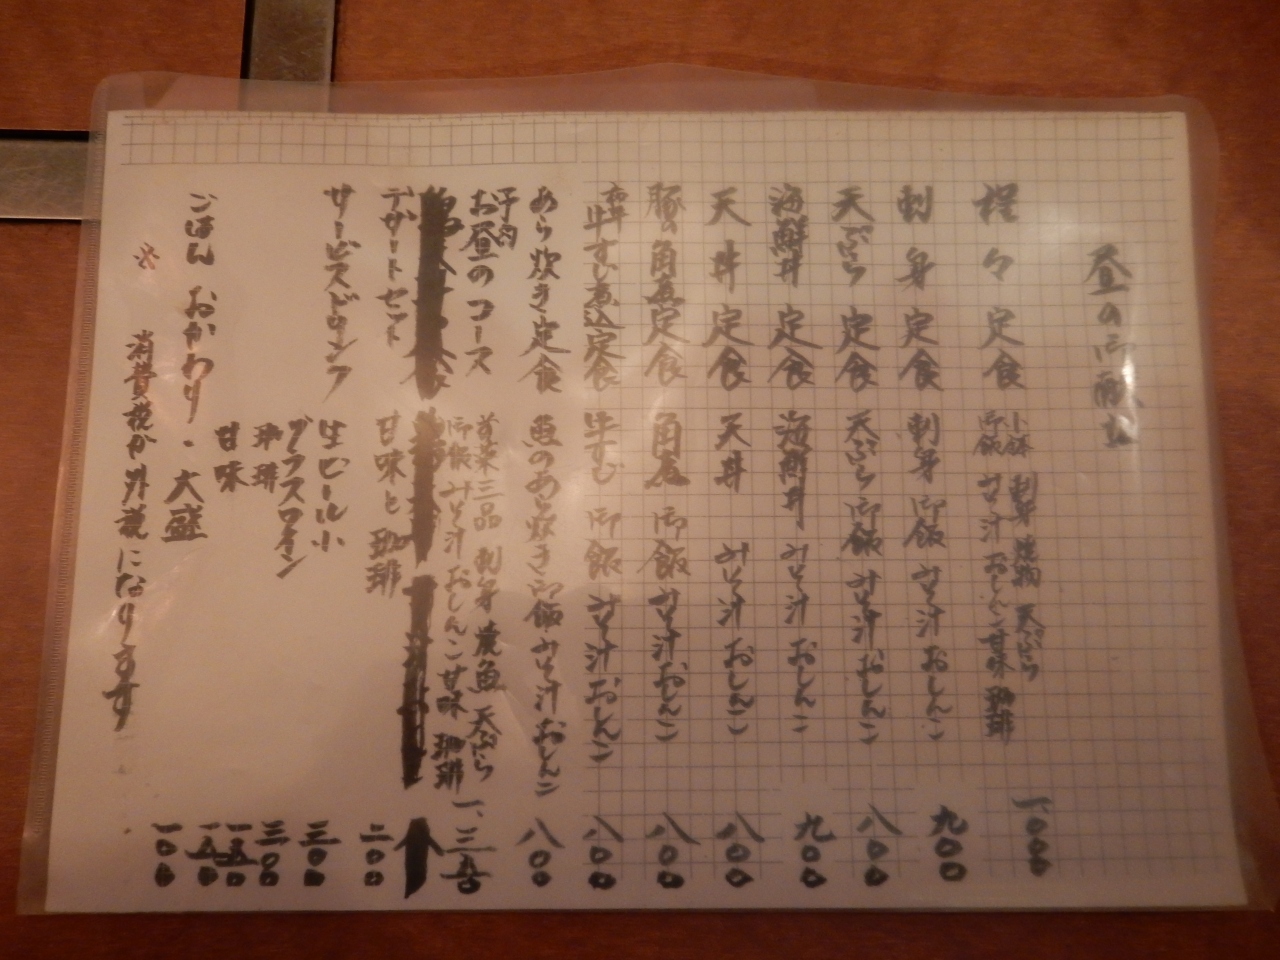 昼の御献立
程々定食 小鉢 刺身 焼物 天ぷら
御飯 みそ汁 おしんこ 甘味 珈琲 一、000
刺身定食 刺身 御飯 みそ汁 おしんこ 九00
天ぷら定食 天ぷら 御飯 みそ汁 おしんこ 八00
海鮮丼定食 海鮮丼 みそ汁 おしんこ 九00
天丼定食 天丼 みそ汁 おしんこ 八00
豚の角煮定食 角煮 御飯 みそ汁 おしんこ 八00
牛すじ煮込定食 牛すじ 御飯 みそ汁 おしんこ 八00
あら炊き定食 魚のあら炊き 御飯 みそ汁 おしんこ 八00
予約
お昼のコース 前菜三品 刺身 焼魚 天ぷら
御飯 みそ汁 おしんこ 甘味 珈琲 一、三五0
デザートセット 甘味と珈琲 二00
サービスドリンク 生ビール小 三00
グラスワイン 三00
珈琲 一五0
甘味 一五0
ごはん おかわり・大盛 一00
※ 消費税が外税になります